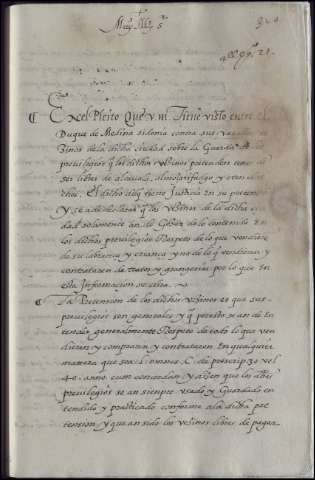 Muy Illes s.
En el Pleito Que v m Tiene visto entre el
Duque de Medina sidonia contra sus vasallos ve
zinos de la dicha ciudad sobre la Guarda de los
preuilegios q los dichos vezinos pretenden tener de
ser libres de alcauala, almoxarifadgo y otros dere
chos. El dicho duq tiene Justicia En su pretens
y se a de declarar q los vezinos de la dicha ciu
dad solamente an de Gozar de lo contenido En
los dichos preuilegios Respeto de lo que vendieren
de su labrança y criança y no de lo q vendieren y
contrataren de trato y grangeria por lo que En
esta Informacion se dira.
La Pretension de los dichos vezinos es que sus
preuilegios son generales y q por esto se an de En
tender generalmente Respeto de todo lo que ven
dieren y compraren y contrataren En qualquier
manera que sea
40. anno cum concordan. y dizen que los dhos
preuilegios se an siempre vsado y Guardado en
tendido y praticado conforme a la dicha pre
tension y que an sido los vezinos libres de pagar